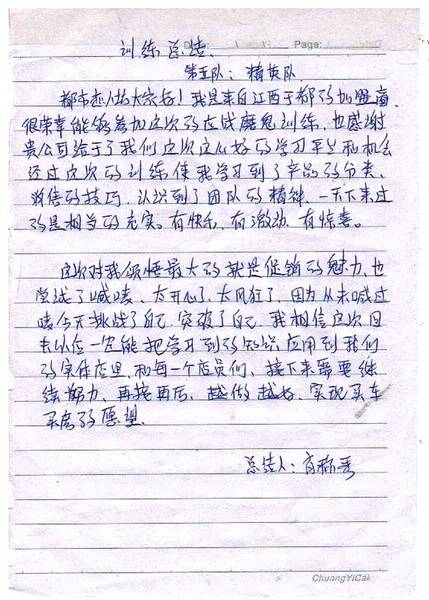 Date: Page:
训练总结
第五队：精英队
都市恋人姑大家好！我是来自江西于都的加盟商、
很荣幸能够参加这次的应战魔鬼训练，也感谢
贵公司给于了我们这次这么好的学习平台和机会
经过这次的训练使我学习到了产品的分类、
销售的技巧、认识到了团队的精神、一天下来过
的是相当的充实。有快乐，有激动，有惊喜。
这次对我领悟最大的就是促销的魅力、也
尝试了喊麦、太开心了、太风狂了，因为从来喊过
麦今天挑战了自己，突破了自己，我相信这次回
去以后一定能把学习到的知识应用到我们
的实体店里，和每一个店员们、接下来需要继
续努力、再接再厉，越做越好，实现买车
买房的愿望。
总结人：肖
ChuangYiCai